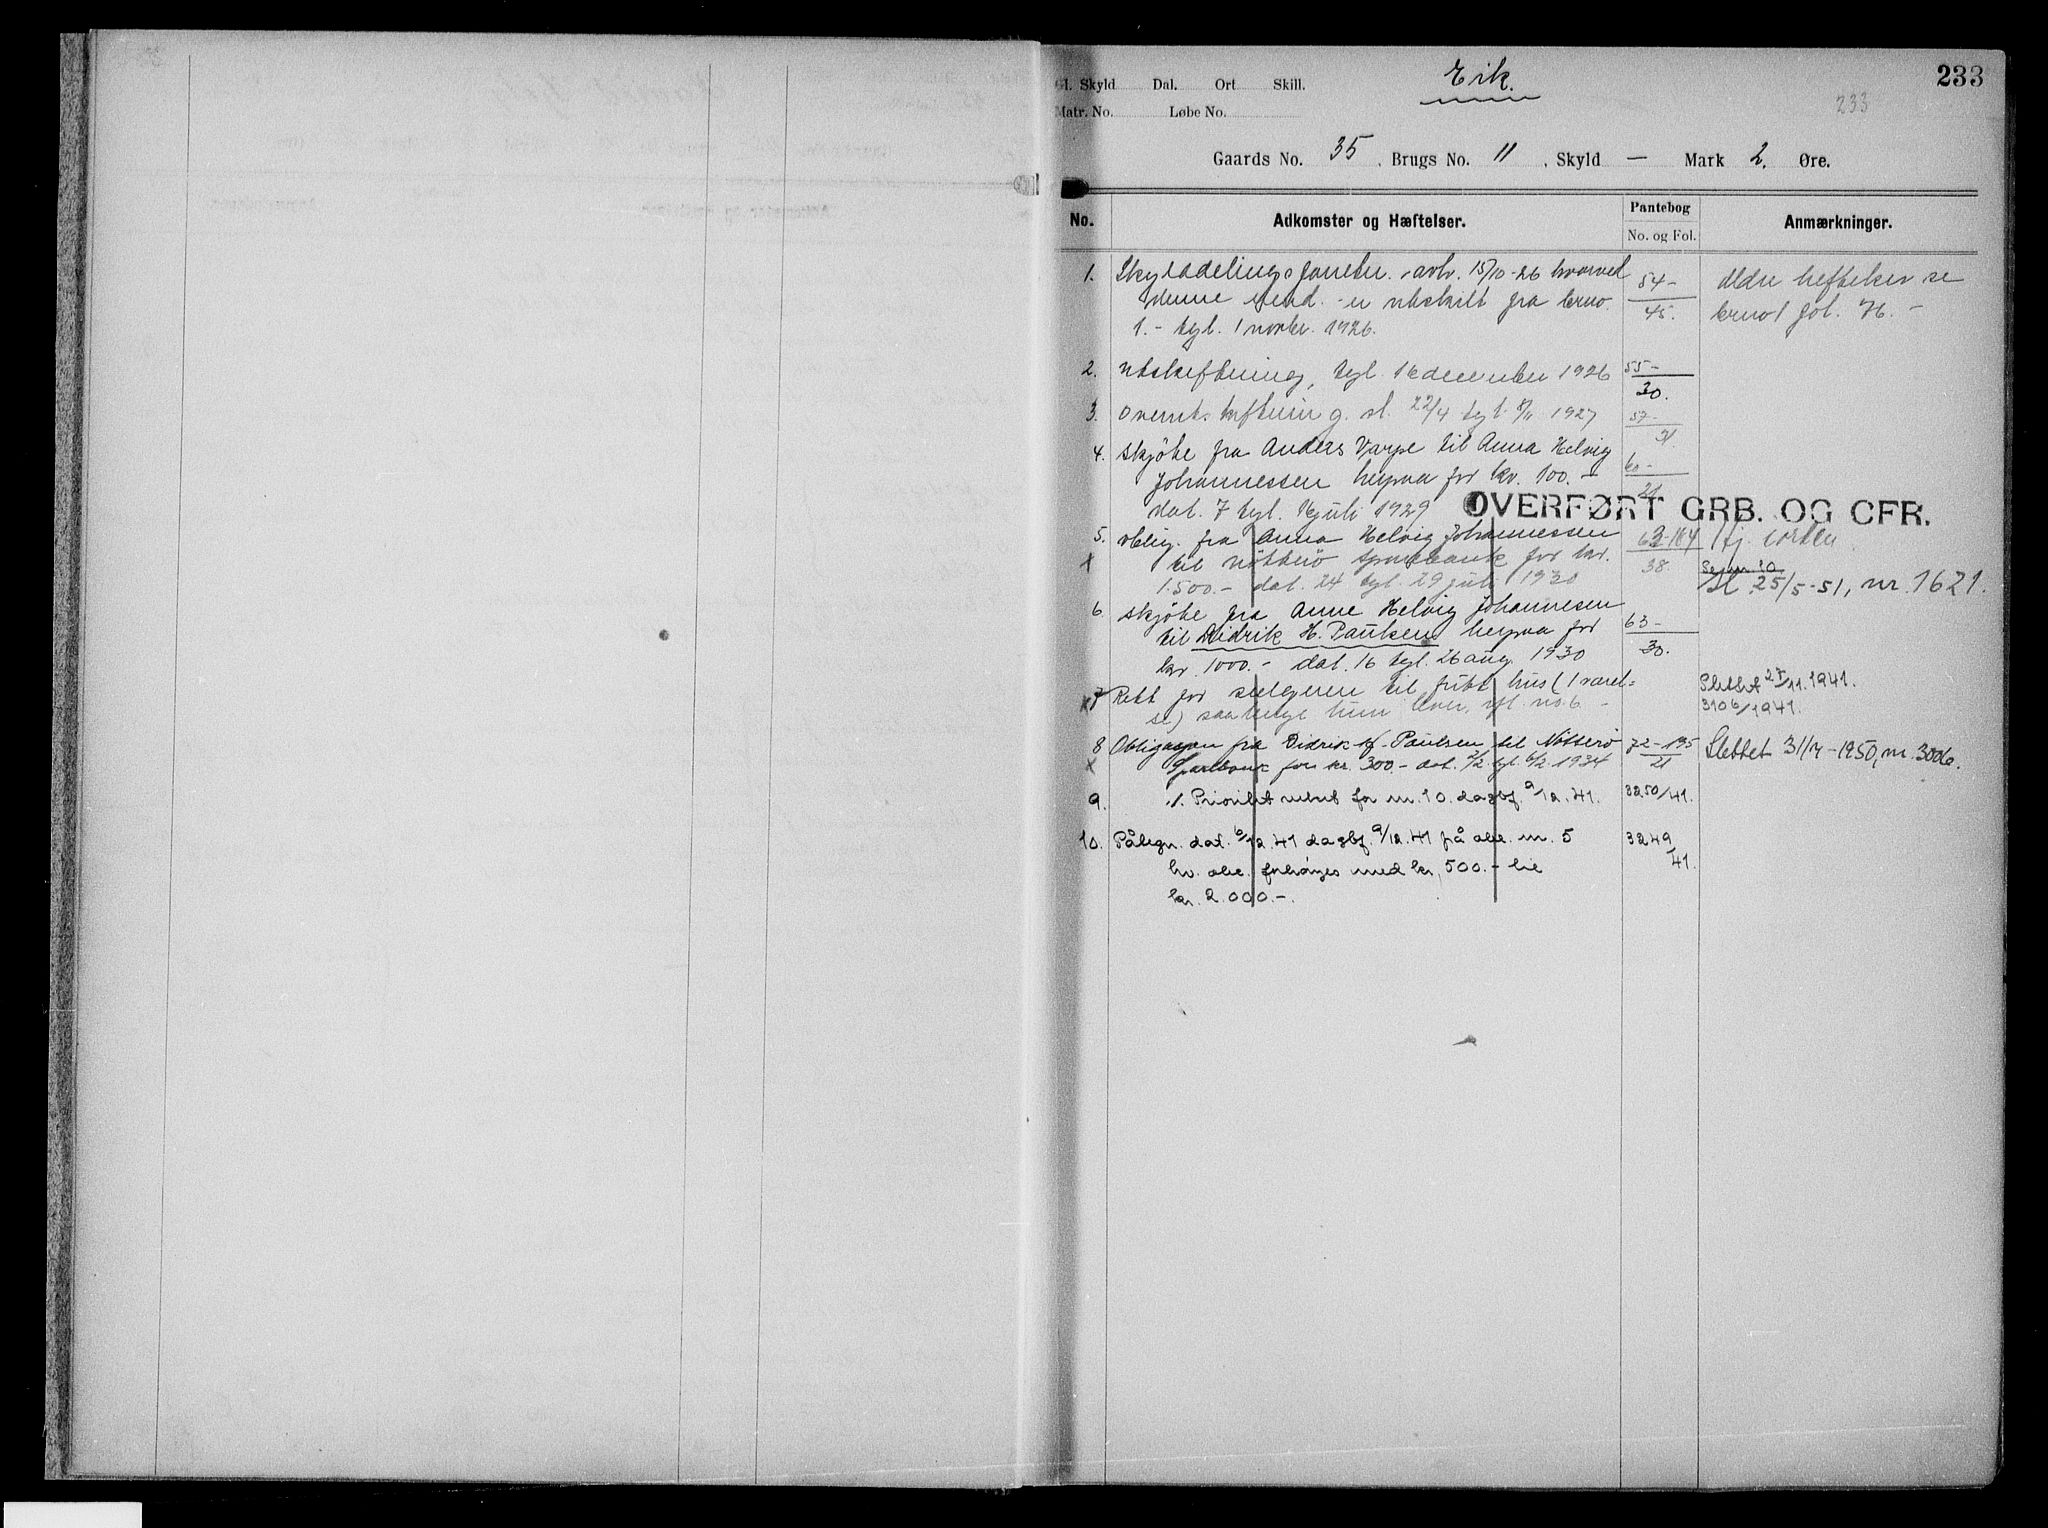 Gl. Skyld Dal. Ort Skill. Eik. 233
Matr. No. Løbe No. 233
Gaards No. 35, Brugs No. 11, Skyld — Mark 2. Øre.
No. Adkomster og Hæftelser. Pantebog No. og Fol. Anmærkninger.
1. Skylddelingsforretn. avh. 15/10-26 hvorved 54- Eldre heftelser se
denne eiend. er utskilt fra brno 45. brno 1 fol. 76. -
1. - tgl. 1 novbr. 1926.
2. Utskiftning, tgl. 16 december 1926 55-
30.
3. Overutskiftning sl. 22/4 tgl. 8/11 1927 57-
4. Skjöte fra Anders Varpe til Anna Helvig 60-
Johannessen herpaa for kr. 100. - 21
dat. 7 tgl. juli 1929 OVERFØRT GRB. OG CFR.
5. Oblig. fra Anna Helvig Johannessen 63-184
X til Nötterö Sparebank for kr. 38. Se nr. 10
1500.- dat. 24 tgl. 29 juli 1930 Sl. 25/5-51, nr. 1621.
6. Skjöte fra Anne Helvig Johannesen
til Didrik H. Paulsen herpaa for 63-
kr. 1000.- dat. 16 tgl. 26 aug. 1930 30.
X 7 Rett for selgeren til fritt hus (1 værel= Slettet 11.1941.
se) saa lenge hun lever, ifl. no. 6 - 3106/1941.
8 Obligasjon fra Didrik H. Paulsen til Nötterö 72-195 Slettet 31/7-1950, nr. 3006.
X Sparebank for kr. 300.- dat. 2/2 tgl. 6/2 1934 21
9. ./. Prioritet veket for nr. 10. dagbf. 9/12.41. 3250/41.
10. Påtegn. dat. 6/12.41 dagbf. 9/12.41 på obl. nr. 5 3249
hv. obl. forhöyes med kr. 500.- til /41.
kr. 2.000.-.